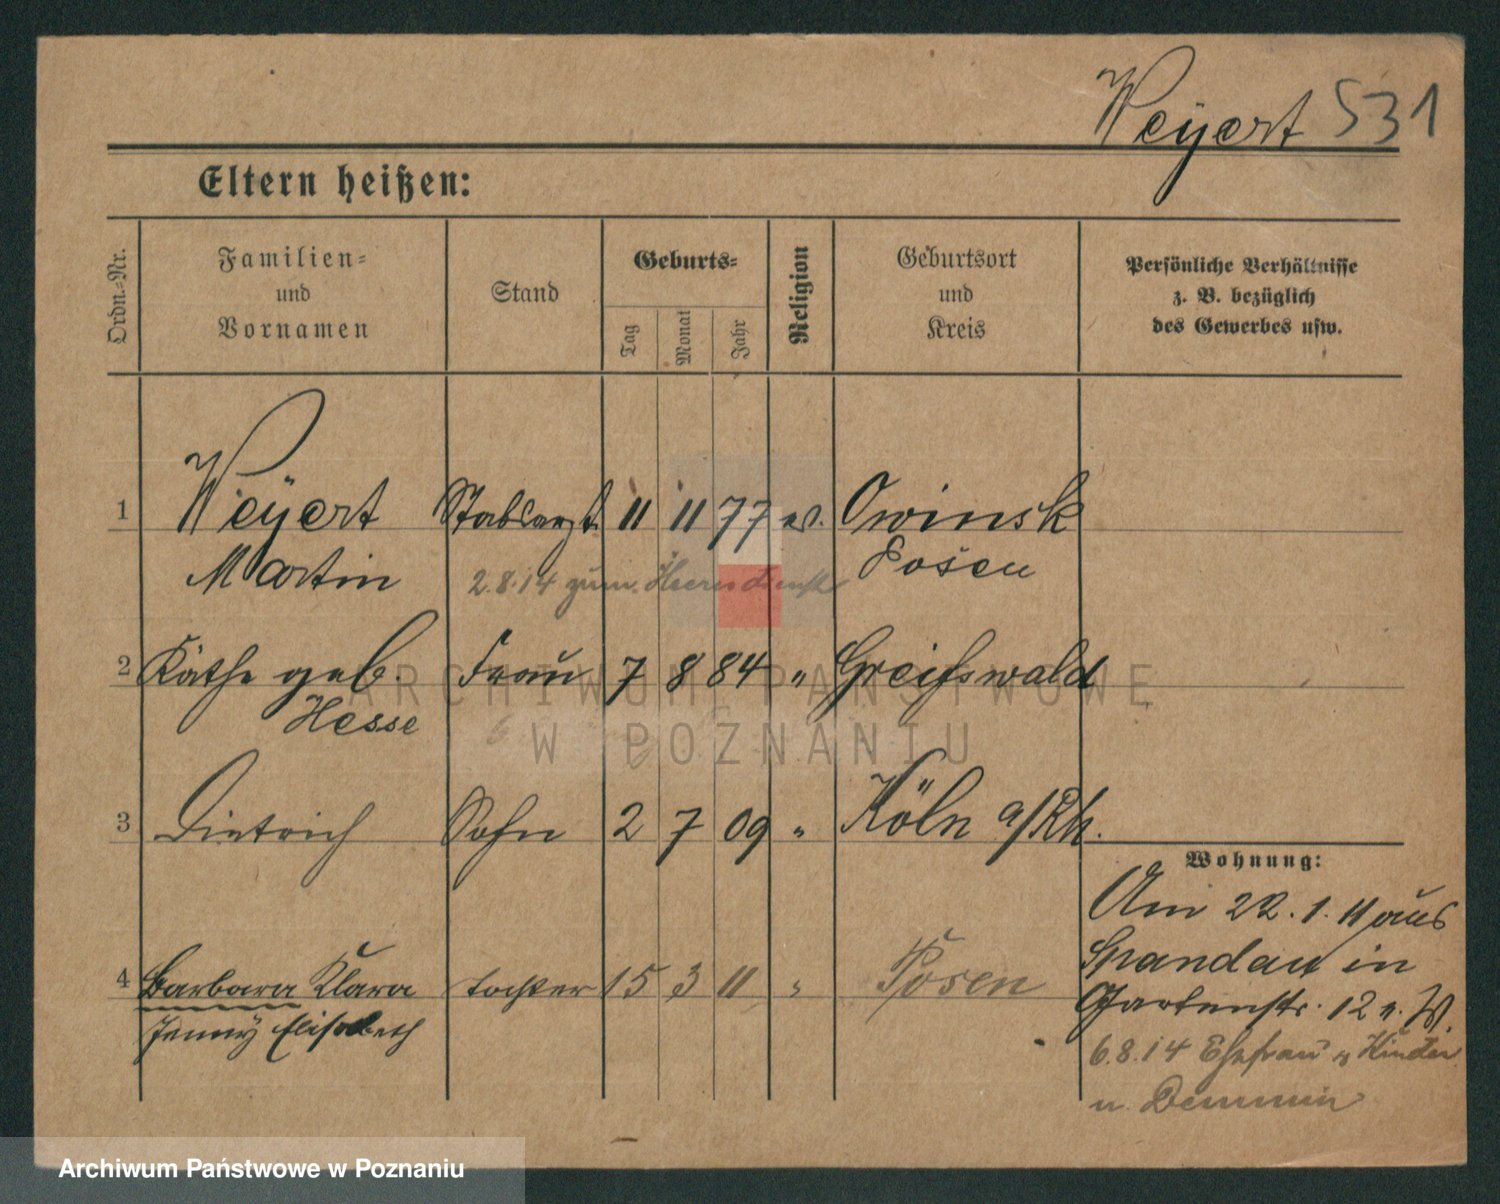 Weÿert 531
Eltern heißen:
Ordn.-Nr.
Familien-
und
Vornamen
Stand
Geburts-
Tag
Monat
Jahr
Religion
Geburtsort
und
Kreis
Persönliche Verhältnisse
z. B. bezüglich
des Gewerbes usw.
1 Weÿert Stabsarzt 11 11 77 ev. Owinsk
Martin Posen
2.8.14 zum Heeresdienst
2 Käthe geb. Frau 7 8 84 " Greifswald
Hesse
ARCHIWUM PAŃSTWOWE
W POZNANIU
3 Dietrich Sohn 2 7 09 " Köln a/Rh.
Wohnung:
Am 22.1.11 aus
Spandau in
Gartenstr. 12 v. W.
6.8.14 Ehefrau Kinder
n. Demmin
4 Barbara Klara Tochter 15 3 11 " Posen
Jenny Elisabeth
Archiwum Państwowe w Poznaniu